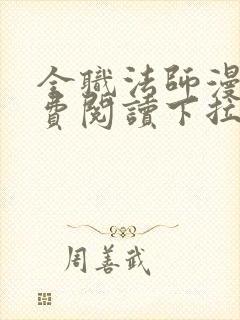 全職法師漫
費閱讀下拉
周善武